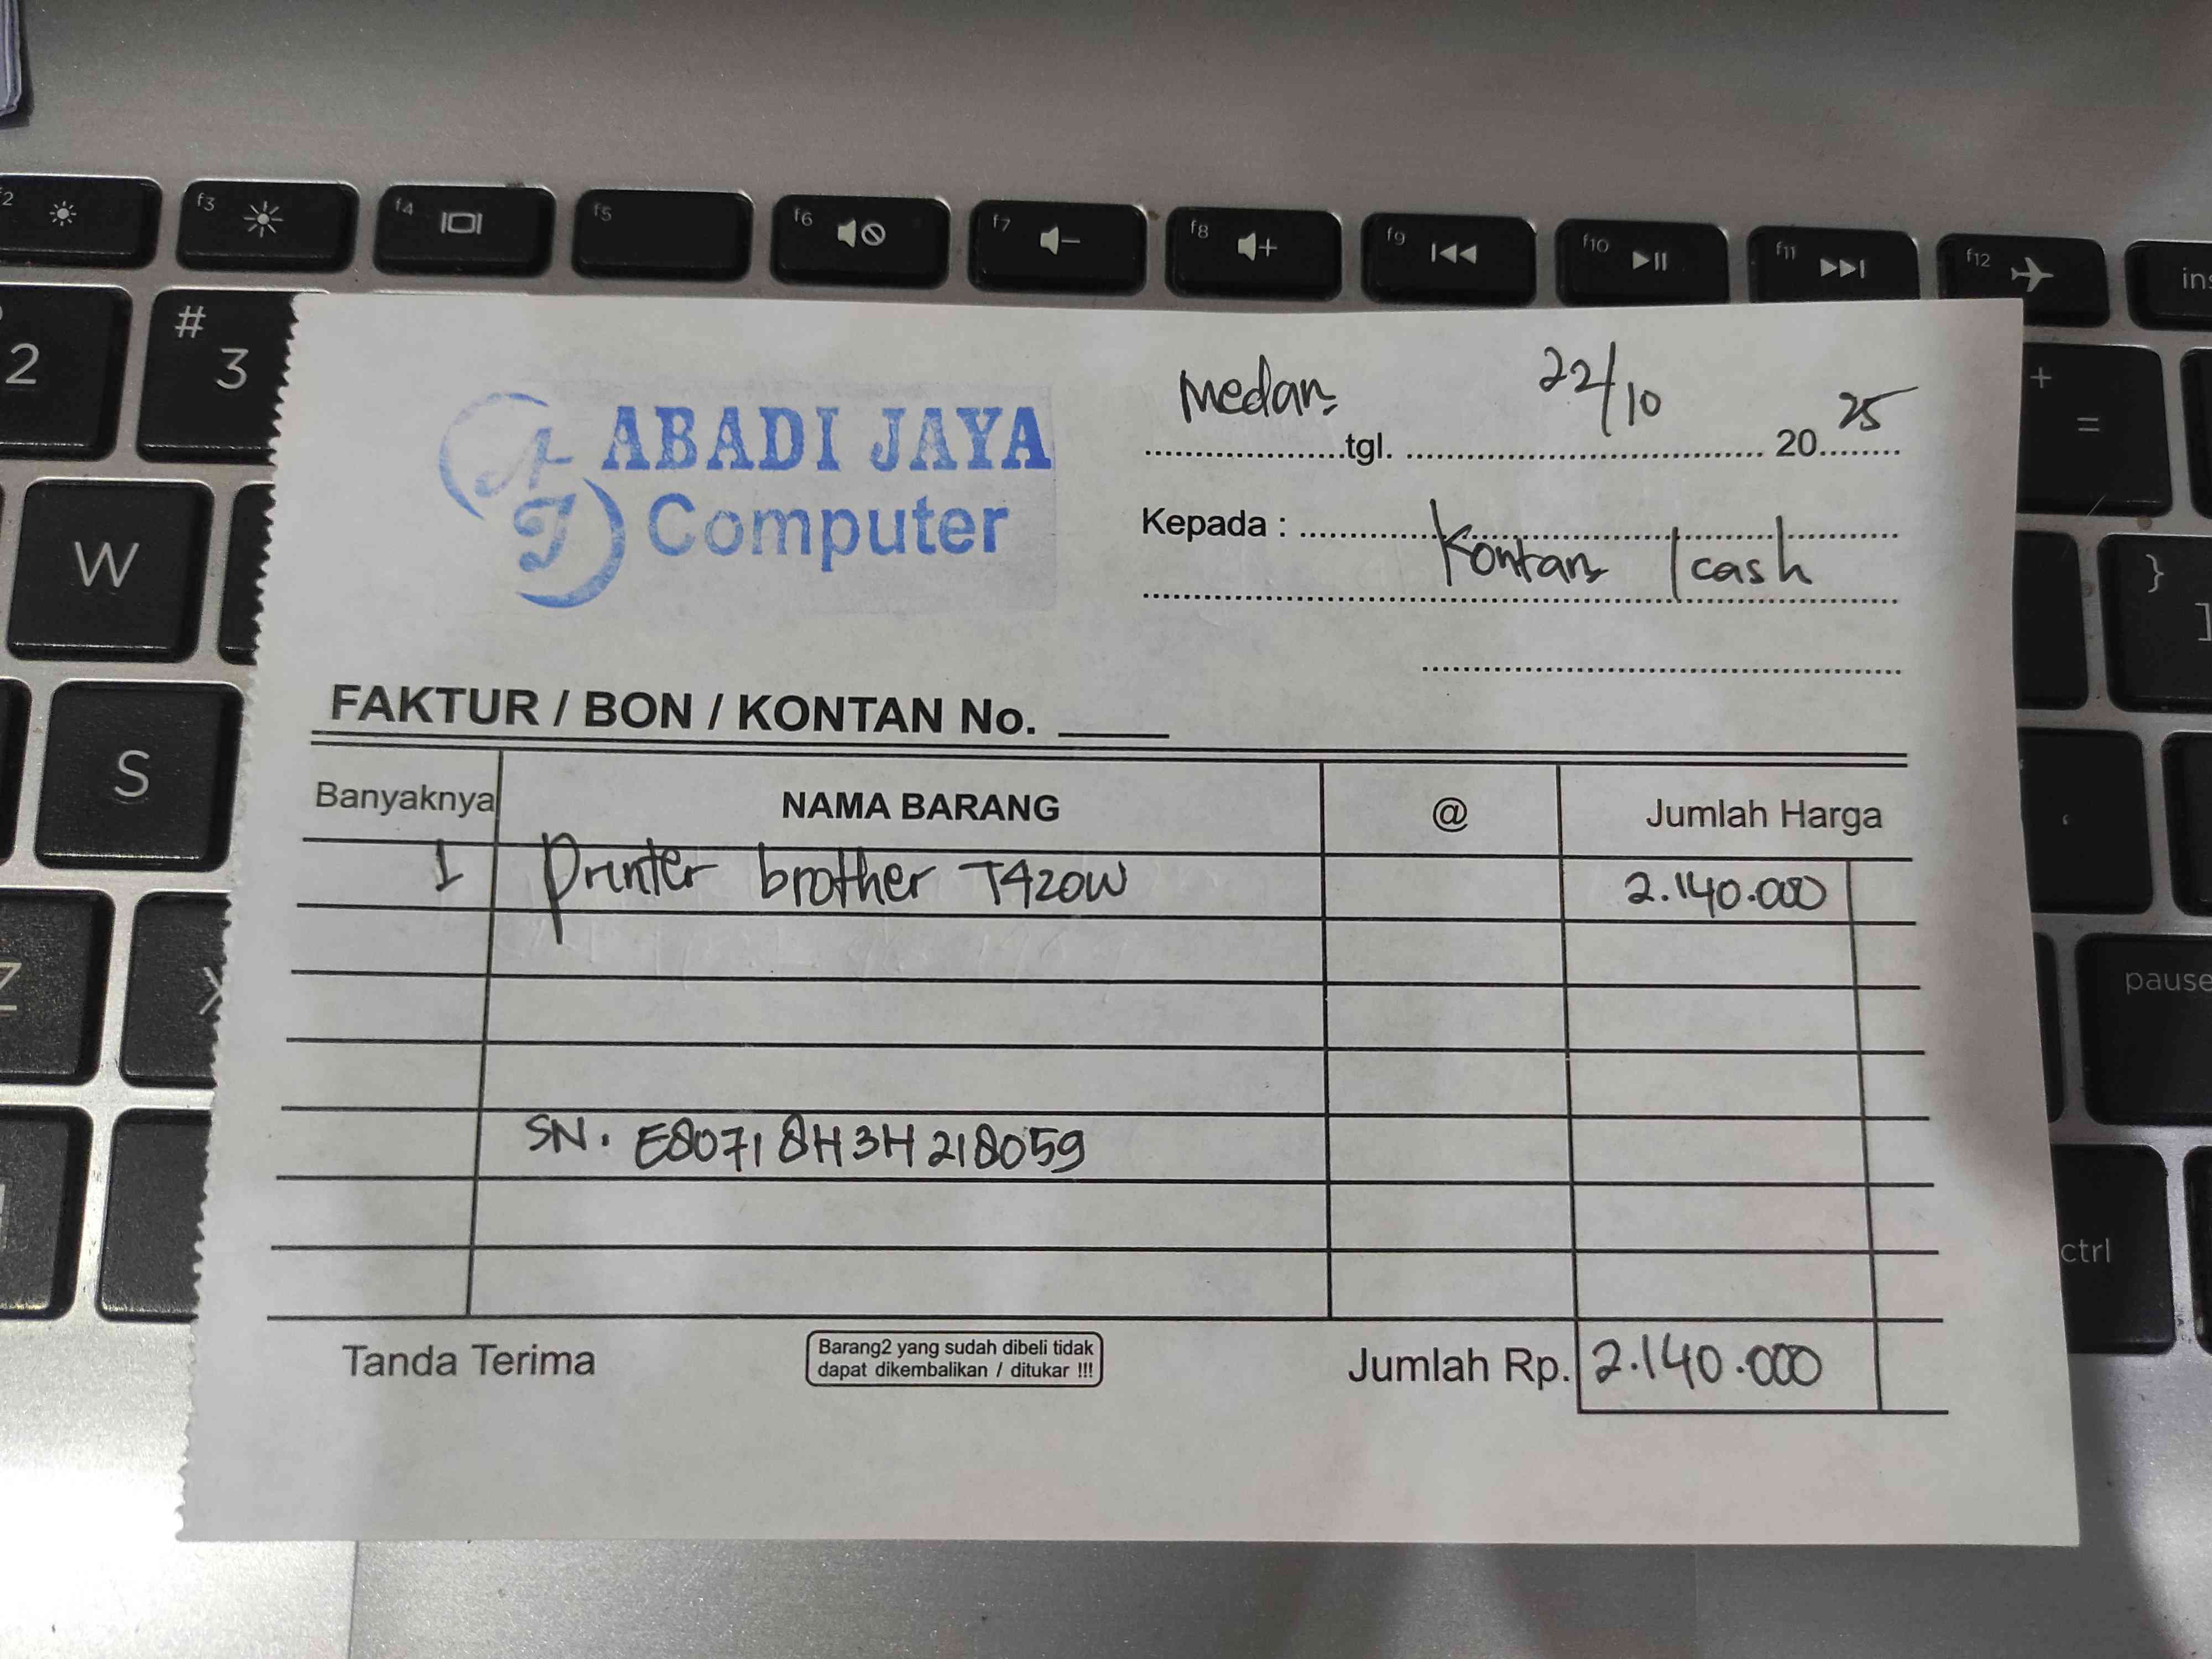 f2
f3
f4
f5
f6
f7
f8
f9
f10
f11
f12
ins
2
# 3
+ =
ABADI JAYA
Computer
AJ
Medan, tgl. 22/10 2025
Kepada : Kontan / cash
FAKTUR / BON / KONTAN No.
Banyaknya NAMA BARANG @ Jumlah Harga
1 Printer brother T420W 2.140.000
SN. E80718H3H218059
Tanda Terima
Barang2 yang sudah dibeli tidak
dapat dikembalikan / ditukar !!!
Jumlah Rp. 2.140.000
W
S
Z
X
}
]
pause
ctrl